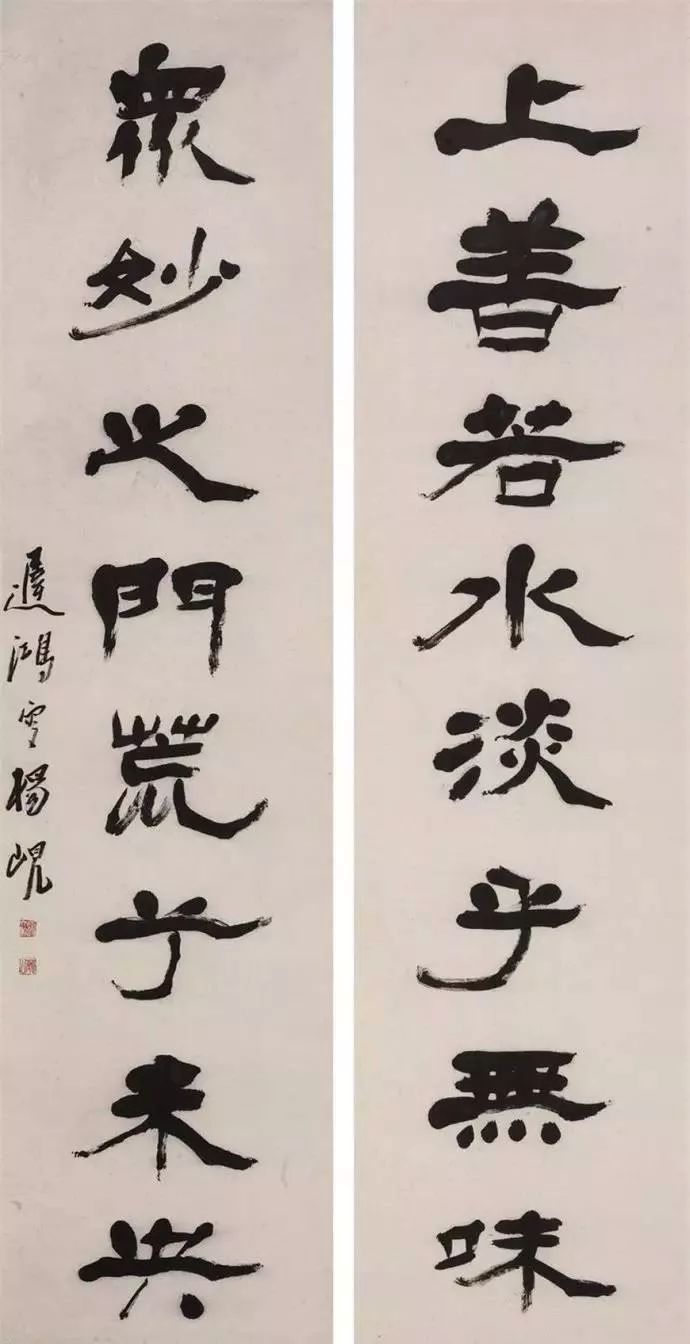 上善若水淡乎無味
眾妙之門荒兮未央
遲鴻楊峴